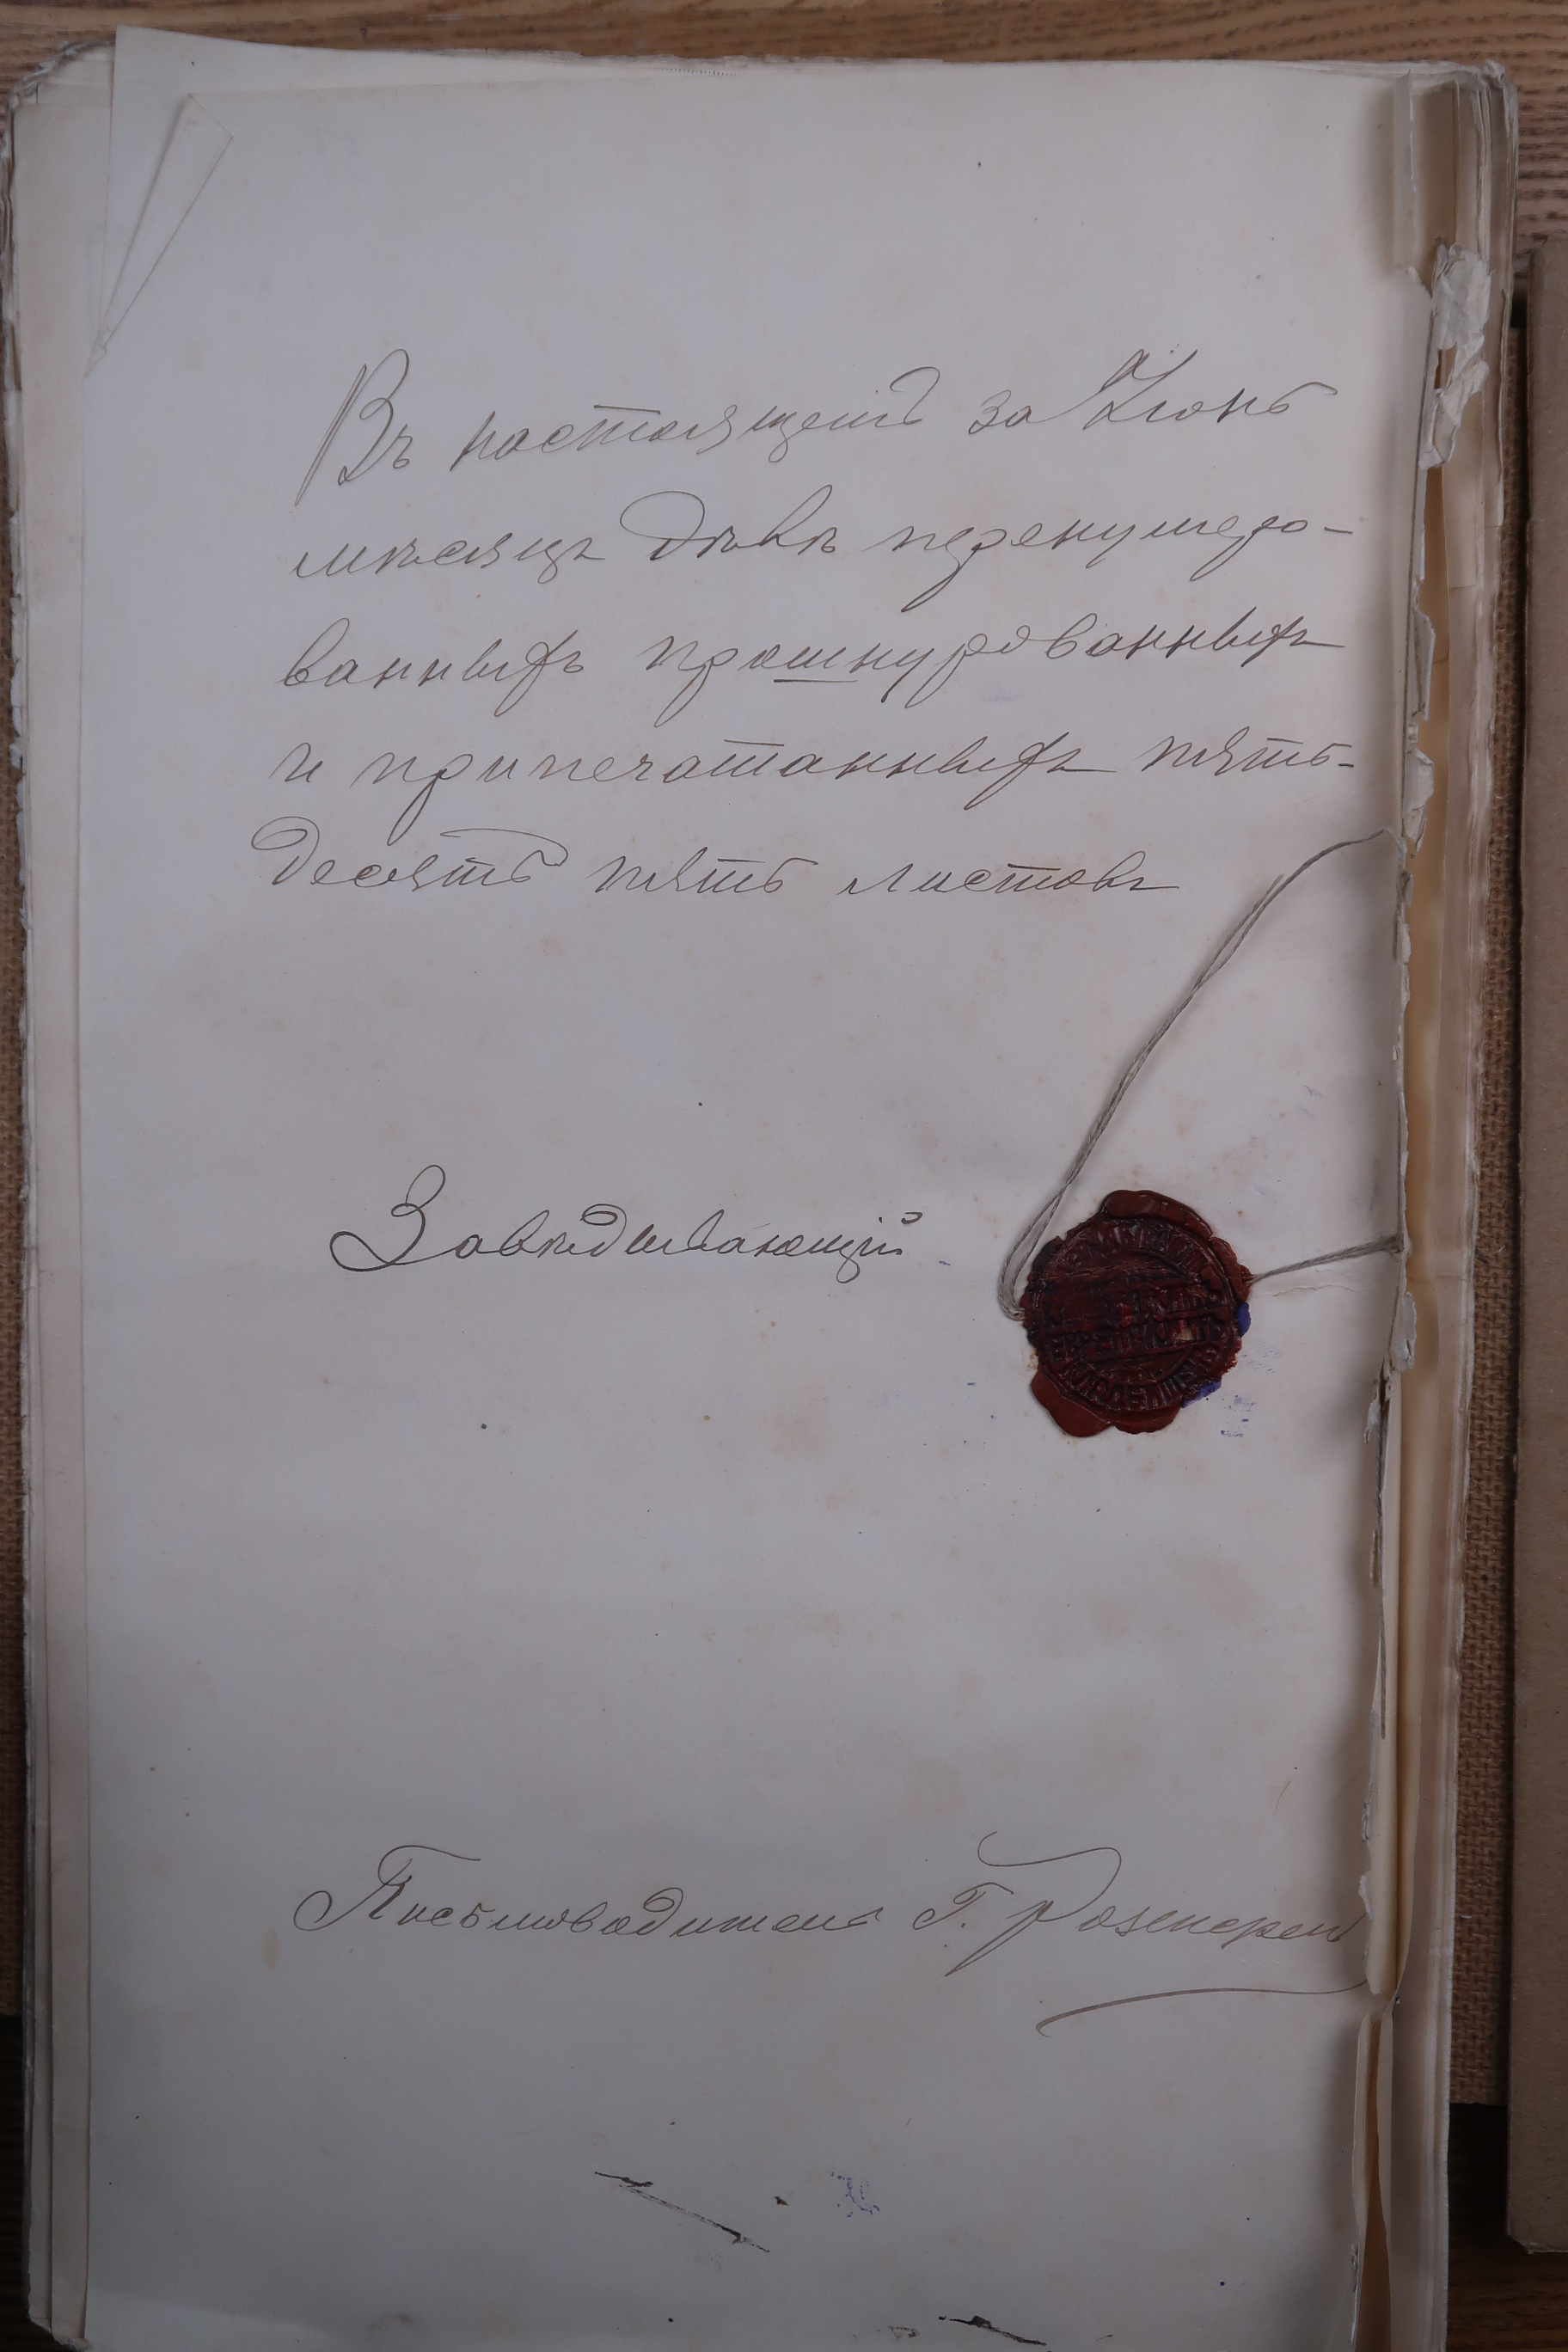 Въ настоящемъ за Іюнь
мѣсяцъ дѣлѣ перенумеро-
ванныхъ прошнурованныхъ
и припечатанныхъ пять-
десятъ пять листовъ
Завѣдывающій
Письмоводитель Г.